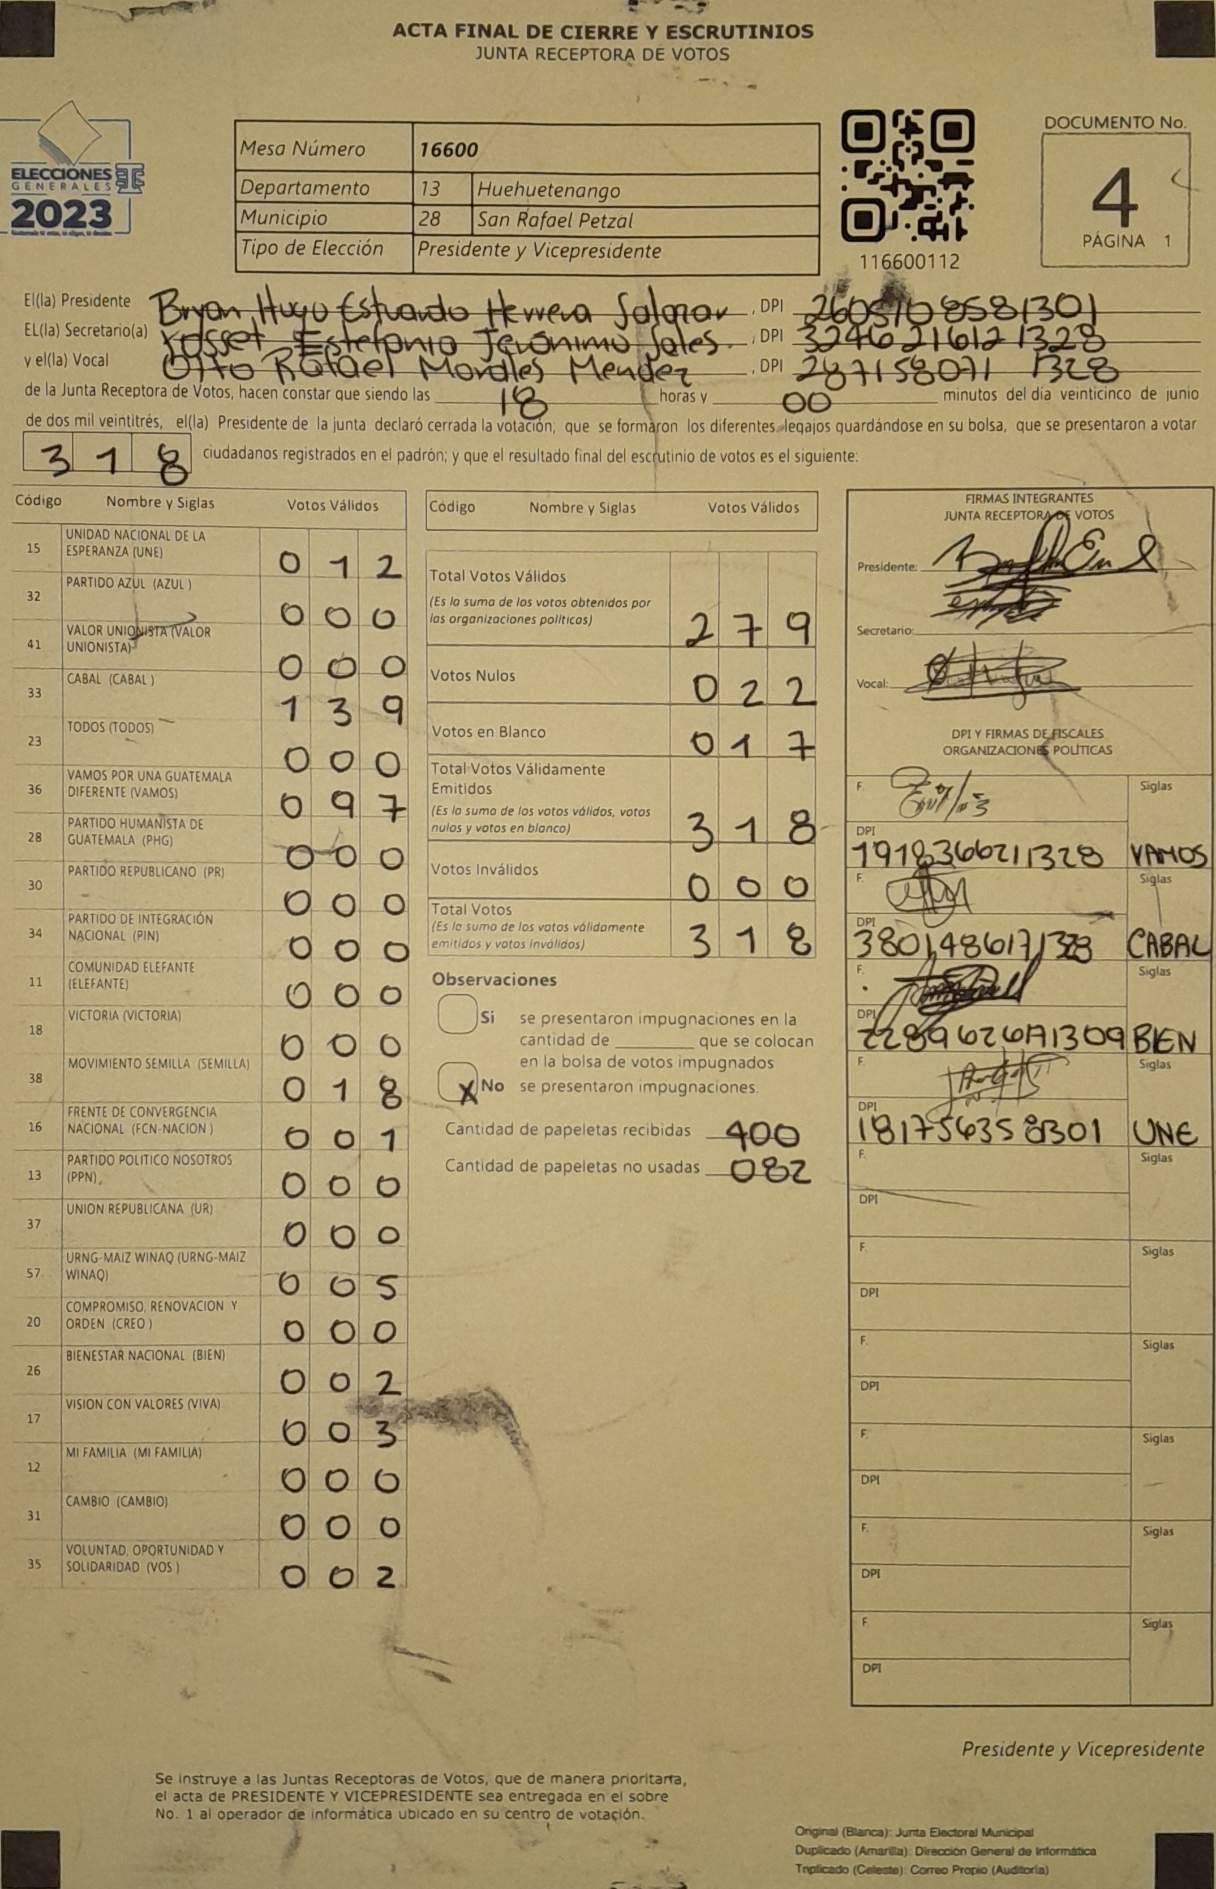 ACTA FINAL DE CIERRE Y ESCRUTINIOS
JUNTA RECEPTORA DE VOTOS
ELECCIONES
GENERALES
2023
Mesa Número 16600
Departamento 13 Huehuetenango
Municipio 28 San Rafael Petzal
Tipo de Elección Presidente y Vicepresidente
116600112
DOCUMENTO No.
4
PÁGINA 1
El(la) Presidente Bryan Hugo Estuardo Herrera Salazar, DPI 2605108581301
EL(la) Secretario(a) Yosset Estefania Jerónimo Sales. , DPI 3246216121328
y el(la) Vocal Otto Rafael Morales Mendez, DPI 287158071 1328
de la Junta Receptora de Votos, hacen constar que siendo las 18 horas y 00 minutos del día veinticinco de junio
de dos mil veintitrés, el(la) Presidente de la junta declaró cerrada la votación, que se formaron los diferentes legajos guardándose en su bolsa, que se presentaron a votar
3 1 8 ciudadanos registrados en el padrón; y que el resultado final del escrutinio de votos es el siguiente:
Código Nombre y Siglas Votos Válidos
15 UNIDAD NACIONAL DE LA
ESPERANZA (UNE) 0 1 2
32 PARTIDO AZUL (AZUL ) 0 0 0
41 VALOR UNIONISTA (VALOR
UNIONISTA) 0 0 0
33 CABAL (CABAL ) 1 3 9
23 TODOS (TODOS) 0 0 0
36 VAMOS POR UNA GUATEMALA
DIFERENTE (VAMOS) 0 9 7
28 PARTIDO HUMANISTA DE
GUATEMALA (PHG) 0 0 0
30 PARTIDO REPUBLICANO (PR) 0 0 0
34 PARTIDO DE INTEGRACIÓN
NACIONAL (PIN) 0 0 0
11 COMUNIDAD ELEFANTE
(ELEFANTE) 0 0 0
18 VICTORIA (VICTORIA) 0 0 0
38 MOVIMIENTO SEMILLA (SEMILLA) 0 1 8
16 FRENTE DE CONVERGENCIA
NACIONAL (FCN-NACION ) 0 0 1
13 PARTIDO POLITICO NOSOTROS
(PPN) 0 0 0
37 UNION REPUBLICANA (UR) 0 0 0
57 URNG-MAIZ WINAQ (URNG-MAIZ
WINAQ) 0 0 5
20 COMPROMISO, RENOVACION Y
ORDEN (CREO ) 0 0 0
26 BIENESTAR NACIONAL (BIEN) 0 0 2
17 VISION CON VALORES (VIVA) 0 0 3
12 MI FAMILIA (MI FAMILIA) 0 0 0
31 CAMBIO (CAMBIO) 0 0 0
35 VOLUNTAD, OPORTUNIDAD Y
SOLIDARIDAD (VOS ) 0 0 2
Código Nombre y Siglas Votos Válidos
Total Votos Válidos
(Es la suma de los votos obtenidos por
las organizaciones políticas) 2 7 9
Votos Nulos 0 2 2
Votos en Blanco 0 1 7
Total Votos Válidamente
Emitidos
(Es la suma de los votos válidos, votos
nulos y votos en blanco) 3 1 8
Votos Inválidos 0 0 0
Total Votos
(Es la suma de los votos válidamente
emitidos y votos inválidos) 3 1 8
Observaciones
Si se presentaron impugnaciones en la
cantidad de ________ que se colocan
en la bolsa de votos impugnados
X No se presentaron impugnaciones.
Cantidad de papeletas recibidas 400
Cantidad de papeletas no usadas 082
FIRMAS INTEGRANTES
JUNTA RECEPTORA DE VOTOS
Presidente:
Secretario:
Vocal:
DPI Y FIRMAS DE FISCALES
ORGANIZACIONES POLÍTICAS
F. Siglas
DPI
1918366211328 VAMOS
F. Siglas
DPI
CABAL
F. Siglas
DPI
BIEN
F. Siglas
DPI
UNE
F. Siglas
DPI
F. Siglas
DPI
F. Siglas
DPI
F. Siglas
DPI
F. Siglas
DPI
F. Siglas
DPI
Presidente y Vicepresidente
Se instruye a las Juntas Receptoras de Votos, que de manera prioritaria,
el acta de PRESIDENTE Y VICEPRESIDENTE sea entregada en el sobre
No. 1 al operador de informática ubicado en su centro de votación.
Original (Blanca): Junta Electoral Municipal
Duplicado (Amarilla): Dirección General de Informática
Triplicado (Celeste): Correo Propio (Auditoría)